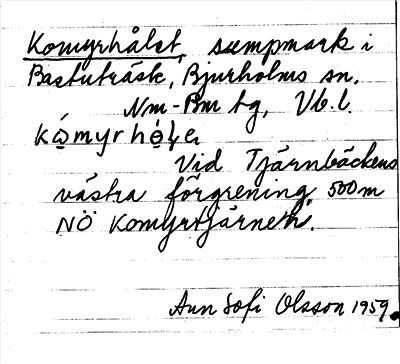 Komyrhålet, sumpmark i
Bastuträsk, Bjurholms sn.
Nm-Bm tg, Vb.l.
kó̱myrhó̱ḷe
Vid Tjärnbäckens
västra förgrening 500 m
NÖ Komyrtjärnen.
Ann Sofi Olsson 1959.